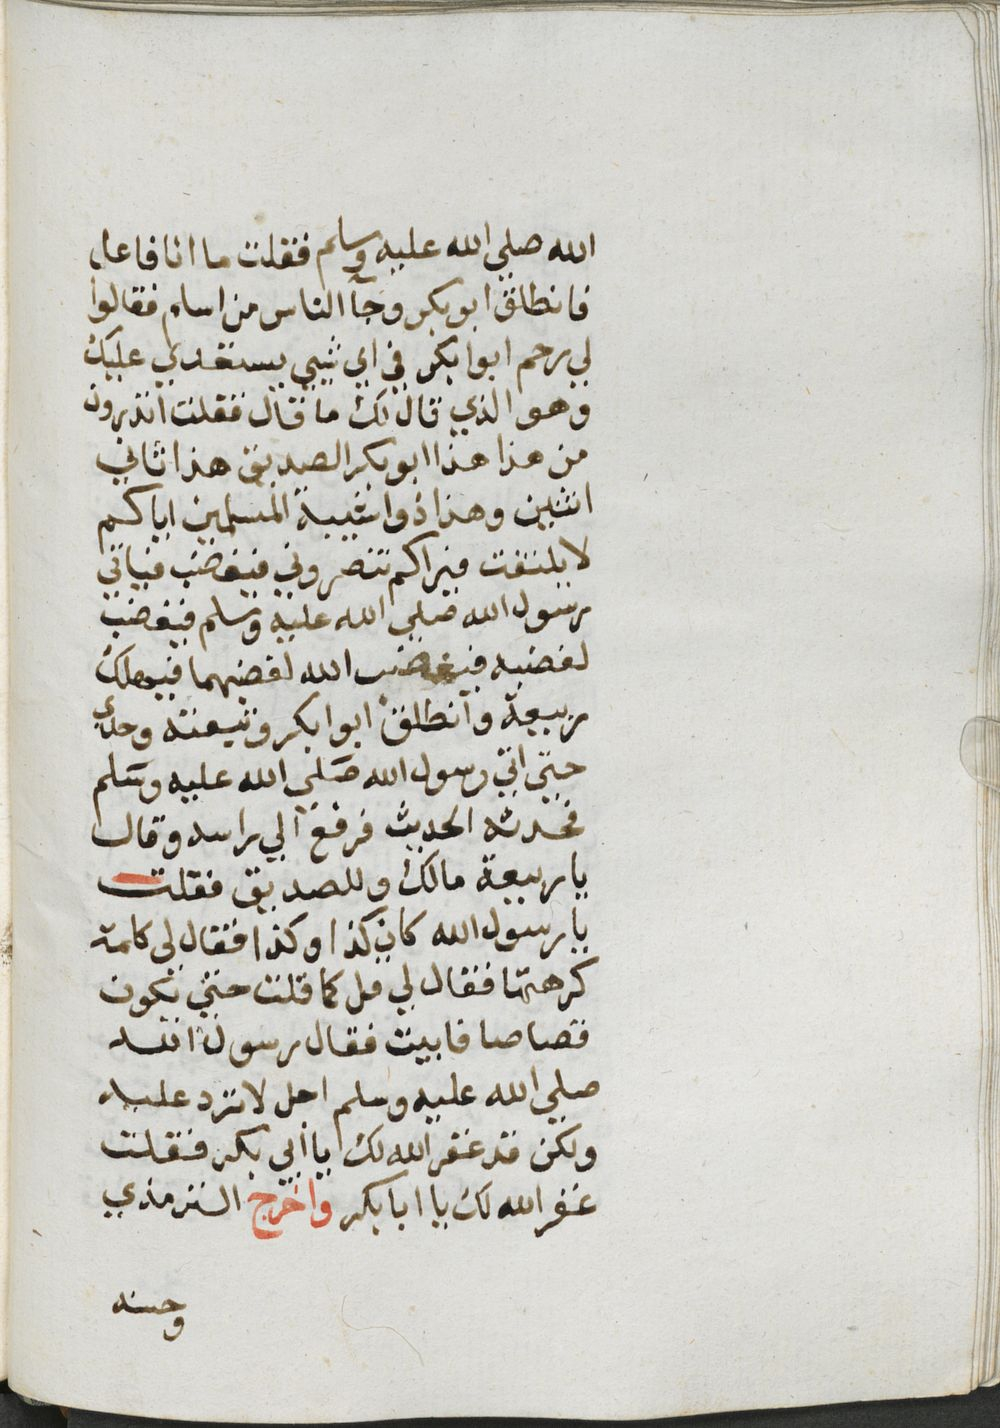 الله صلي الله عليه وسلم فقلت ما انا فاعل
فانطلق ابو بكر وجآ الناس من اسلم فقالوا
لي رحم ابوا بكر في اي شيي يستعدي عليك
وهو الذي قال لك ما قال فقلت اتدرون
من هذا هذا ابو بكر الصديق هذا ثاني
اثنين وهذا ذوا شيبة المسلمين اياكم
لا يلتفت فيراكم تنصروني فيغضب فياتي
رسول الله صلي الله عليه وسلم فيغضب
لغضبه فيغضب الله لغضبهما فيهلك
ربيعة وانطلق ابوا بكر وتبعته وحدي
حتي اتي رسول الله صلي الله عليه وسلم
فحدثه الحديث فرفع الي راسه وقال
يا ربيعة مالك وللصديق فقلت
يا رسول الله كان كذا وكذا فقال لي كلمة
كرهتها فقال لي قل كما قلت حتي تكون
قصاصا فابيت فقال رسول الله
صلي الله عليه وسلم اجل لا ترد عليه
ولكن قد غفر الله لك يا ابي بكر فقلت
غفر الله لك يا ابا بكر واخرج الترمذي
وحسنه